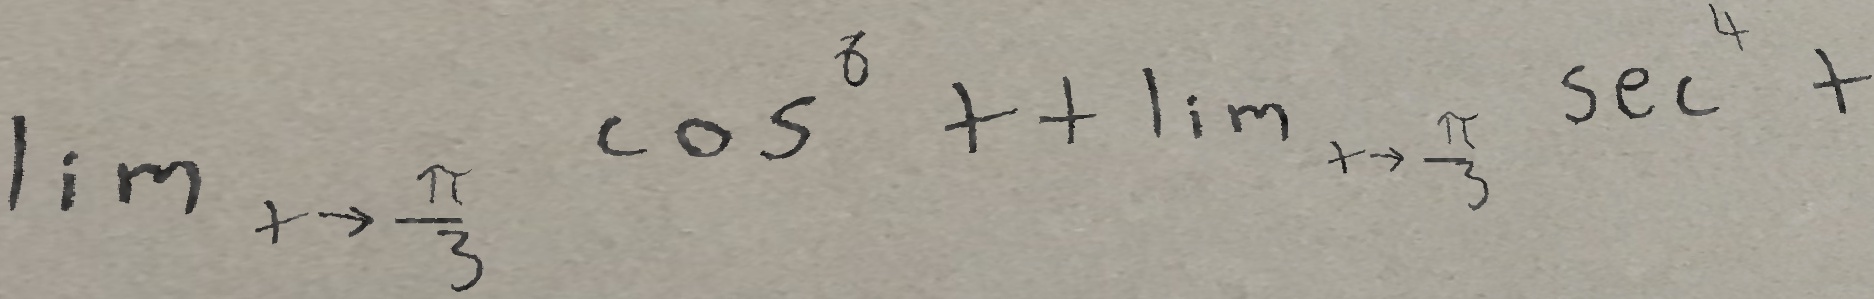 lim_{t→\frac{π}{3}} cos^6 t + lim_{t→\frac{π}{3}} sec^4 t